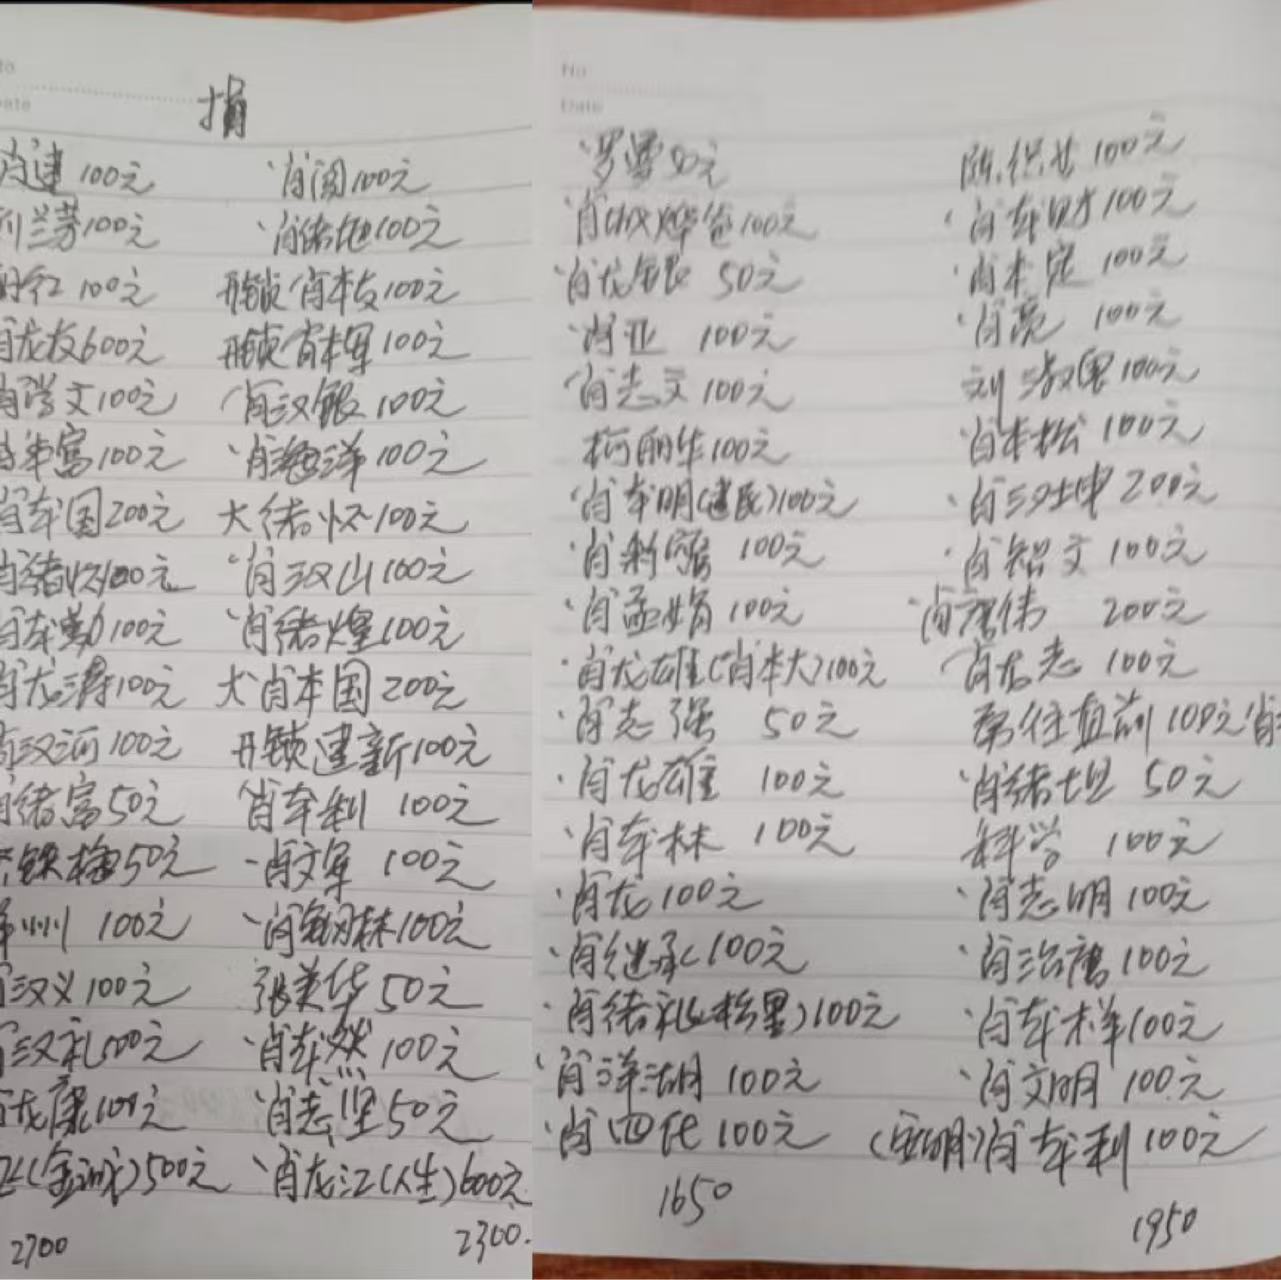 捐
肖建100元 肖阔100元
刘兰芳100元 肖绪地100元
红100元 开锁肖本友100元
肖龙友600元 开锁肖本军100元
肖学文100元 肖汉银100元
本富100元 肖海洋100元
肖本国200元 大绪怀100元
肖绪怀100元 肖汉山100元
肖本勤100元 肖绪煌100元
肖龙涛100元 大肖本国200元
肖汉河100元 开锁建新100元
肖绪富50元 肖本利 100元
铁梅50元 肖文军 100元
州 100元 肖钢林100元
肖汉义100元 张美华50元
肖汉礼500元 肖本然100元
肖龙康100元 肖志坚50元
(金诚)500元 肖龙江(人生)600元
2700 2300.
No
Date
罗雪50元 陈织女100元
肖烨爸100元 肖本财100元
肖龙银 50元 肖本定 100元
肖亚 100元 肖亮 100元
肖志文100元 刘淑军100元
柯丽华100元 肖本松 100元
肖本明(建民)100元 肖坤 200元
肖新 100元 肖智文 100元
肖孟娟100元 肖唐伟 200元
肖龙雄(肖本大)100元 肖龙志 100元
肖志强 50元 100元 肖
肖龙雄 100元 肖绪坦 50元
肖本林 100元 科学 100元
肖龙100元 肖志明100元
肖继承100元 肖治鹰100元
肖绪礼(松墨)100元 肖本祥100元
肖洋湖 100元 肖文明 100元
肖四化100元 (亚明)肖本利100元
1650 1950